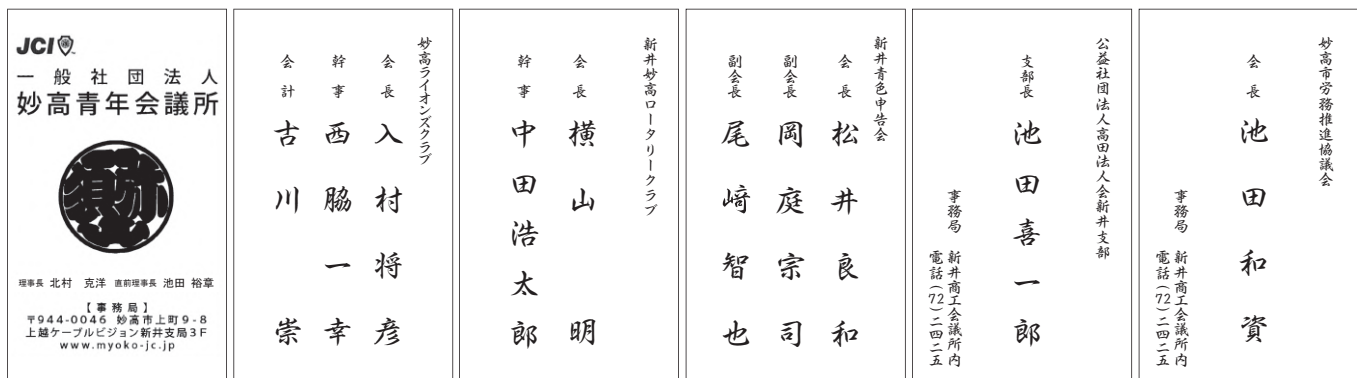 JCI
一般社団法人
妙高青年会議所
弥須
理事長 北村 克洋 直前理事長 池田 裕章
【事務局】
〒944-0046 妙高市上町9-8
上越ケーブルビジョン新井支局3F
www.myoko-jc.jp
妙高ライオンズクラブ
会長 入村将彦
幹事 西脇一幸
会計 古川崇
新井妙高ロータリークラブ
会長 横山明
幹事 中田浩太郎
新井青色申告会
会長 松井良和
副会長 岡庭宗司
副会長 尾﨑智也
公益社団法人高田法人会新井支部
支部長 池田喜一郎
事務局 新井商工会議所内
電話(72)二四二五
妙高市労務推進協議会
会長 池田和資
事務局 新井商工会議所内
電話(72)二四二五